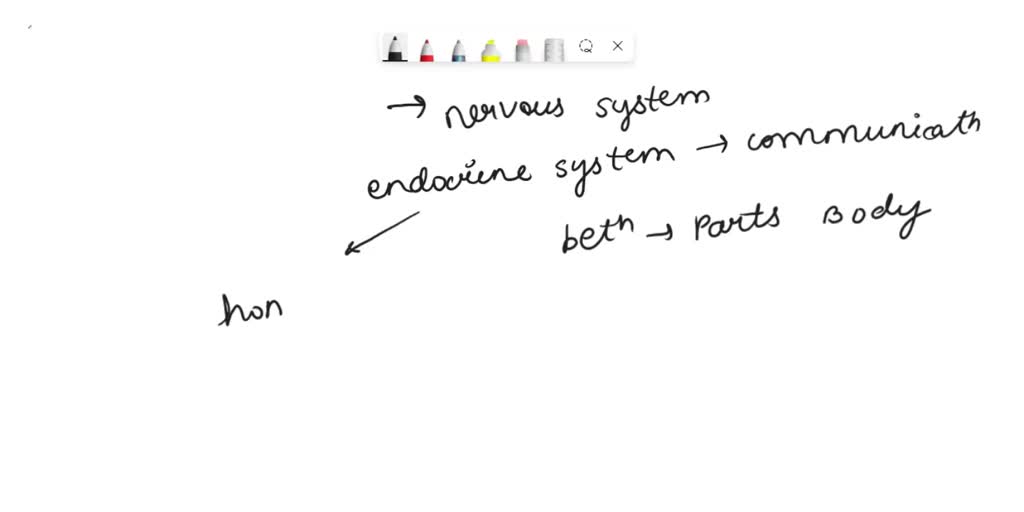 → nervous system
endocrine system → communicath
beth → Parts Body
hon